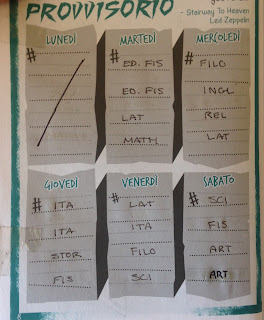 PROVVISORIO
- Stairway To Heaven
Led Zeppelin
LUNEDÌ
#
MARTEDÌ
#
ED. FIS
ED. FIS
LAT
MATH
MERCOLEDÌ
# FILO
INGL
REL
LAT
GIOVEDÌ
# ITA
ITA
STOR
FIS
VENERDÌ
# LAT
ITA
FILO
SCI
SABATO
# SCI
FIS
ART
ART